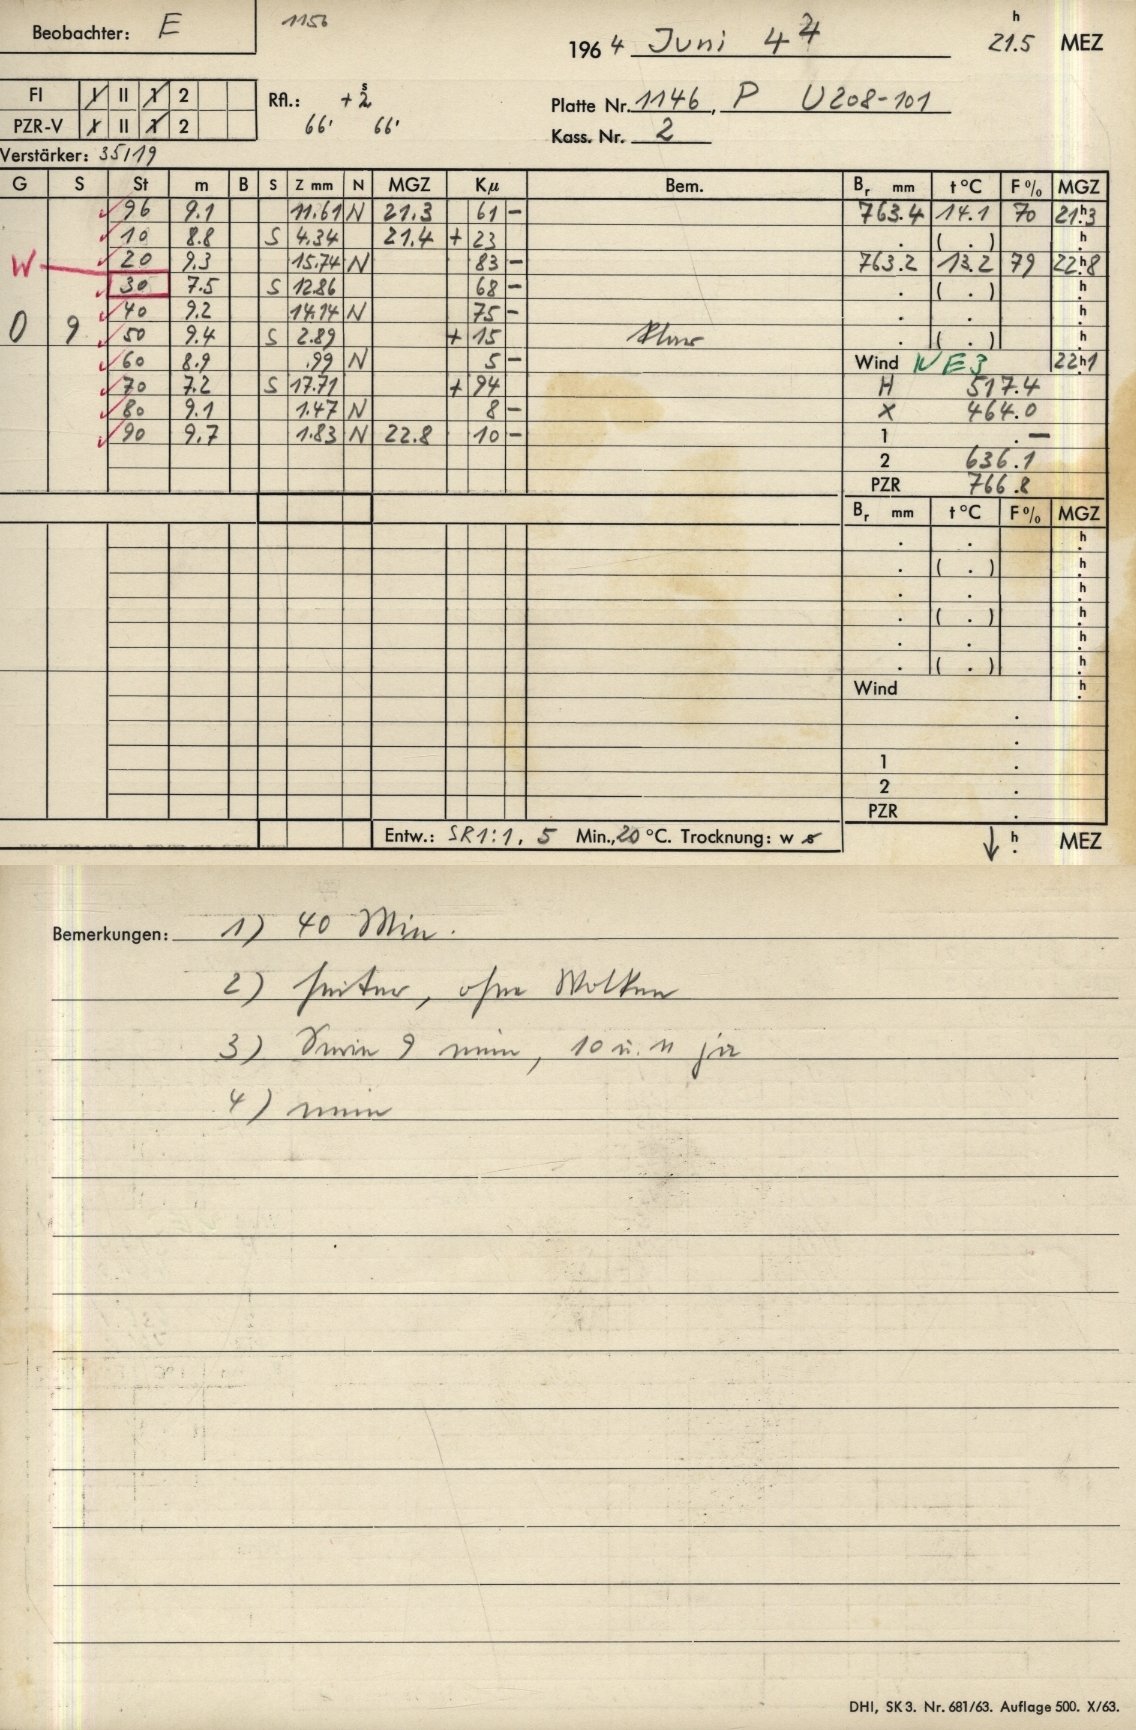 Beobachter: E
1156
1964 Juni 4
21.5 h MEZ
FI I II 1 2
PZR-V I II 1 2
Rfl.: +2 s
66' 66'
Platte Nr. 1146, P U208-101
Kass. Nr. 2
Verstärker: 35/19
G S St m B S Z mm N MGZ Kμ Bem. Br mm t°C F% MGZ
96 9.1 11.61 N 21.3 61 - 763.4 14.1 70 21h.3
10 8.8 S 4.34 21.4 + 23 . ( . ) h.
W 20 9.3 15.74 N 83 - 763.2 13.2 79 22h.8
30 7.5 S 12.86 68 - . ( . ) h.
40 9.2 14.14 N 75 - . . h.
0 9 50 9.4 S 2.89 + 15 klar . ( . ) h.
60 8.9 .99 N 5 - Wind NE3 22h.1
70 7.2 S 17.71 + 94 H 517.4
80 9.1 1.47 N 8 - X 464.0
90 9.7 1.83 N 22.8 10 - 1 . —
2 636.1
PZR 766.8
Br mm t°C F% MGZ
. . h.
. ( . ) h.
. . h.
. ( . ) h.
. . h.
. ( . ) h.
Wind h.
.
.
1 .
2 .
PZR .
Entw.: SR1:1, 5 Min., 20 °C. Trocknung: w s
↓ h. MEZ
Bemerkungen: 1) 40 Min.
2) heiter, ohne Wolken
3) 9 nein, 10 u. 11 ja
4) nein
DHI, SK 3. Nr. 681/63. Auflage 500. X/63.